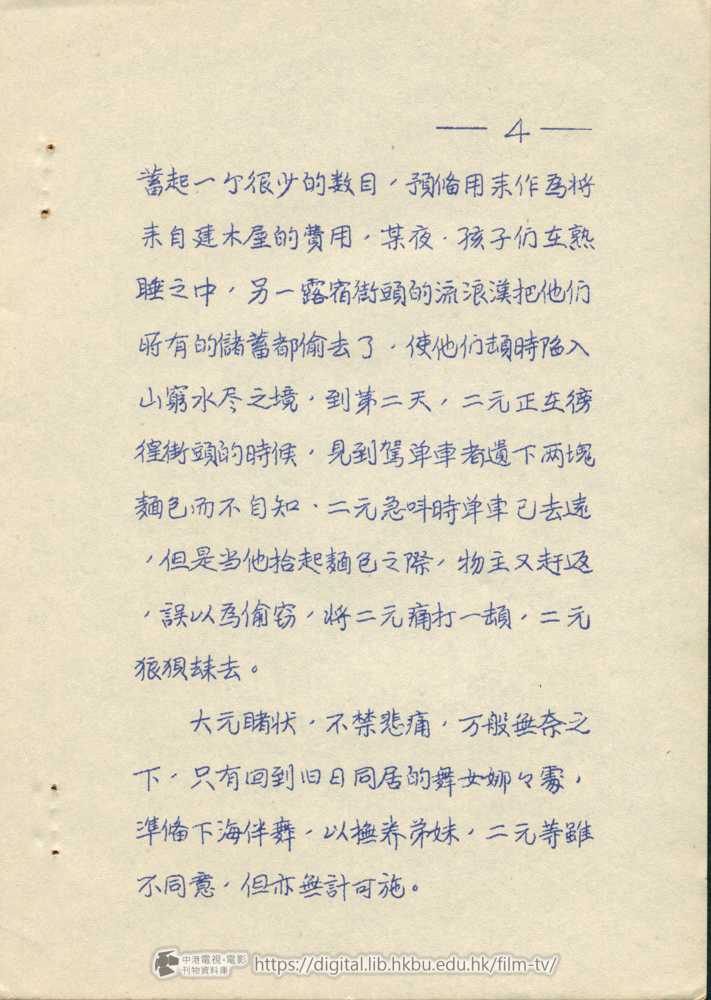 — 4 —
蓄起一个很少的数目，預備用来作為将
来自建木屋的費用，某夜．孩子们在熟
睡之中，另一露宿街頭的流浪漢把他们
所有的儲蓄都偷去了，使他们頓時陷入
山窮水尽之境，到第二天，二元正在徬
徨街頭的時候，見到駕单車者遺下两塊
麵包而不自知．二元急叫時单車已去遠
，但是当他拾起麵包之際，物主又赶返
，誤以為偷窃，将二元痛打一頓，二元
狼狽逃去。
大元睹状，不禁悲痛，万般無奈之
下，只有回到旧日同居的舞女娜々處，
準備下海伴舞，以撫养弟妹，二元等雖
不同意，但亦無計可施。
中港電視·電影
刊物資料庫
https://digital.lib.hkbu.edu.hk/film-tv/